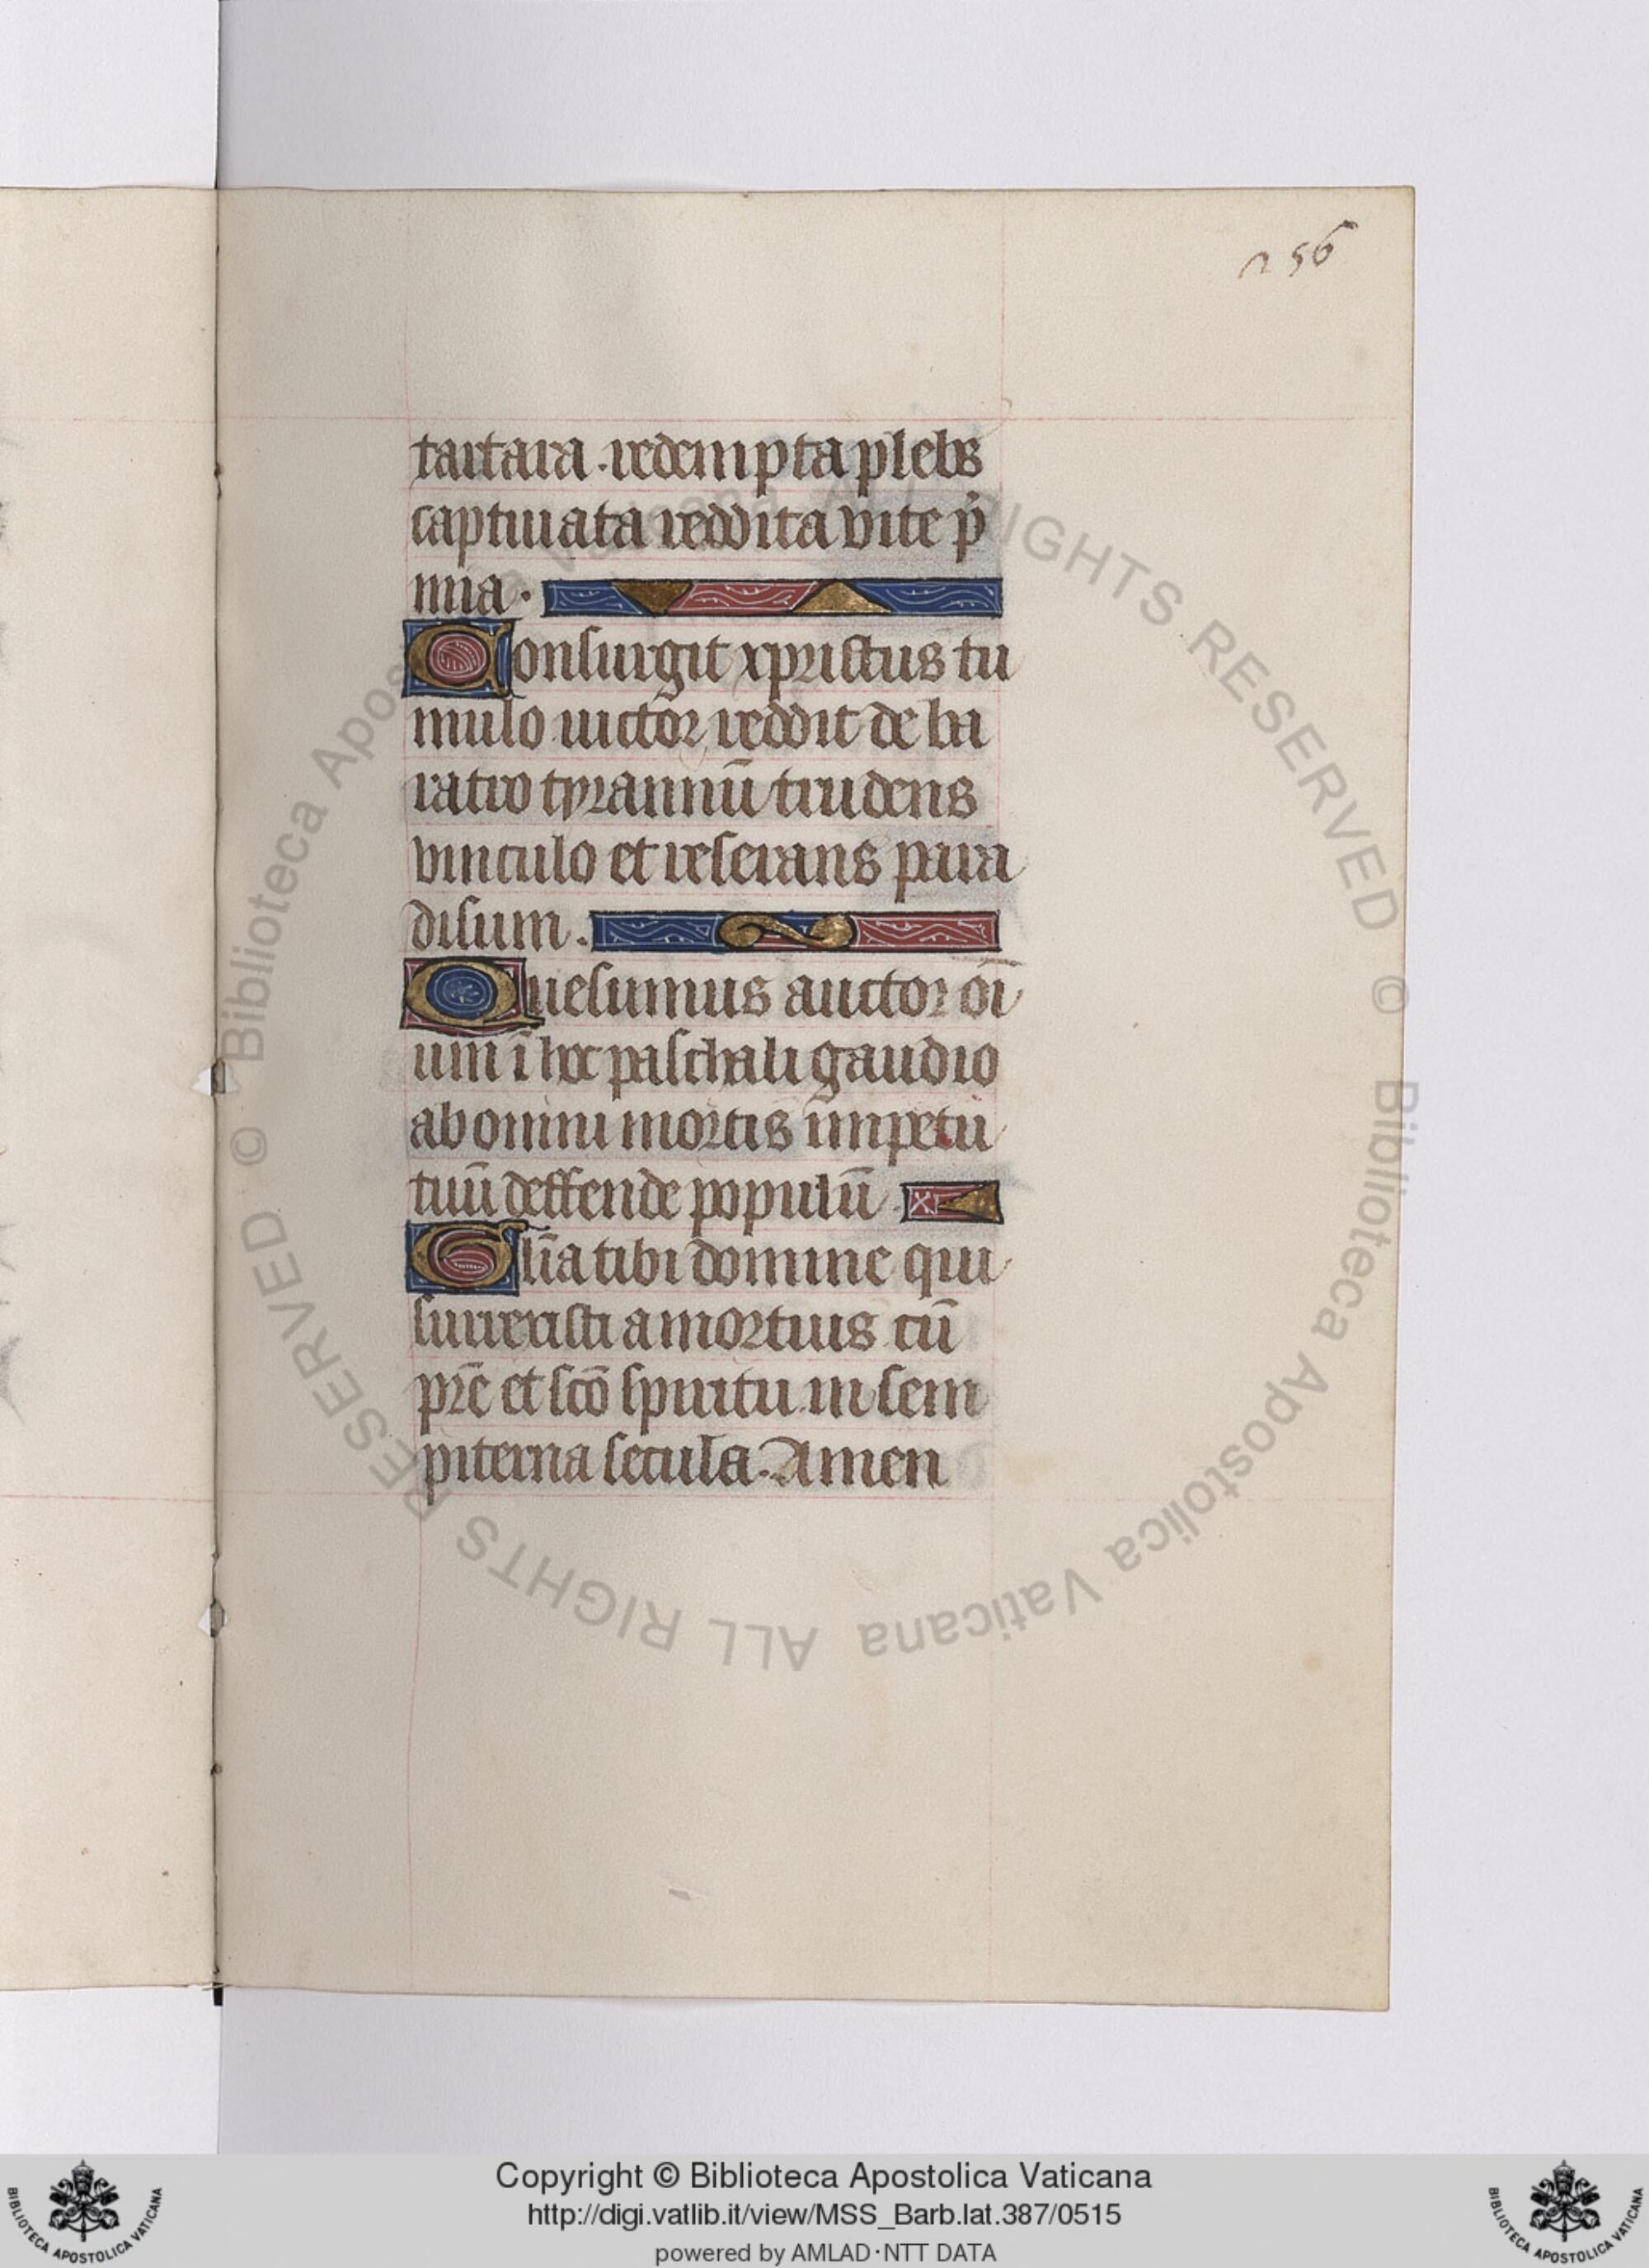 256
tartara . redempta plebs
captiuata reddita vite p̄
mia .
Consurgit xpristus tu
mulo uictor reddit de ba
ratro tyrannū trudens
vinculo et reserans para
disum .
Quesumus auctor oī
um ī hoc paschali gaudio
ab omni mortis impetu
tuū deffende populū .
Glīa tibi domine qui
surrexisti a mortuis cū
prē et scō spiritu in sem
piterna secula . Amen
© Biblioteca Apostolica Vaticana ALL RIGHTS RESERVED © Biblioteca Apostolica Vaticana ALL RIGHTS RESERVED
Copyright © Biblioteca Apostolica Vaticana
http://digi.vatlib.it/view/MSS_Barb.lat.387/0515
powered by AMLAD·NTT DATA
BIBLIOTECA APOSTOLICA VATICANA
BIBLIOTECA APOSTOLICA VATICANA